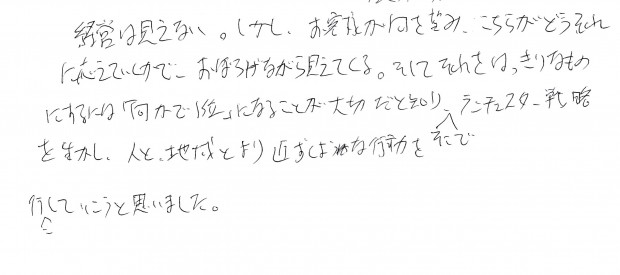 経営は見えない。しかし、お客様が何を望み、こちらがどうそれ
に応えていくかで、おぼろげながら見えてくる。そしてそれをはっきりなもの
にするには「何かで1位」になることが大切だと知り、ランチェスター戦略
を生かし、人と、地域とより近な行動をそこで
行していこうと思いました。